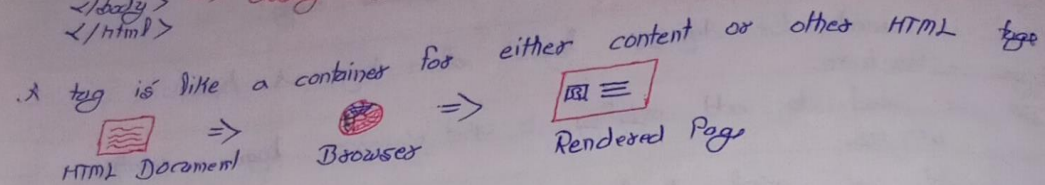 </body>
</html>
.A tag is like a container for either content or other HTML tags
=> =>
HTML Document Browser Rendered Page